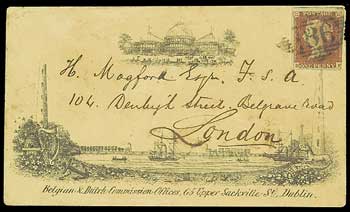 H. Mogford Esqr. F. S. A
104. Denbigh Street. Belgrave Road
London
Belgian & Dutch Commission Offices, 65 Upper Sackville St., Dublin.